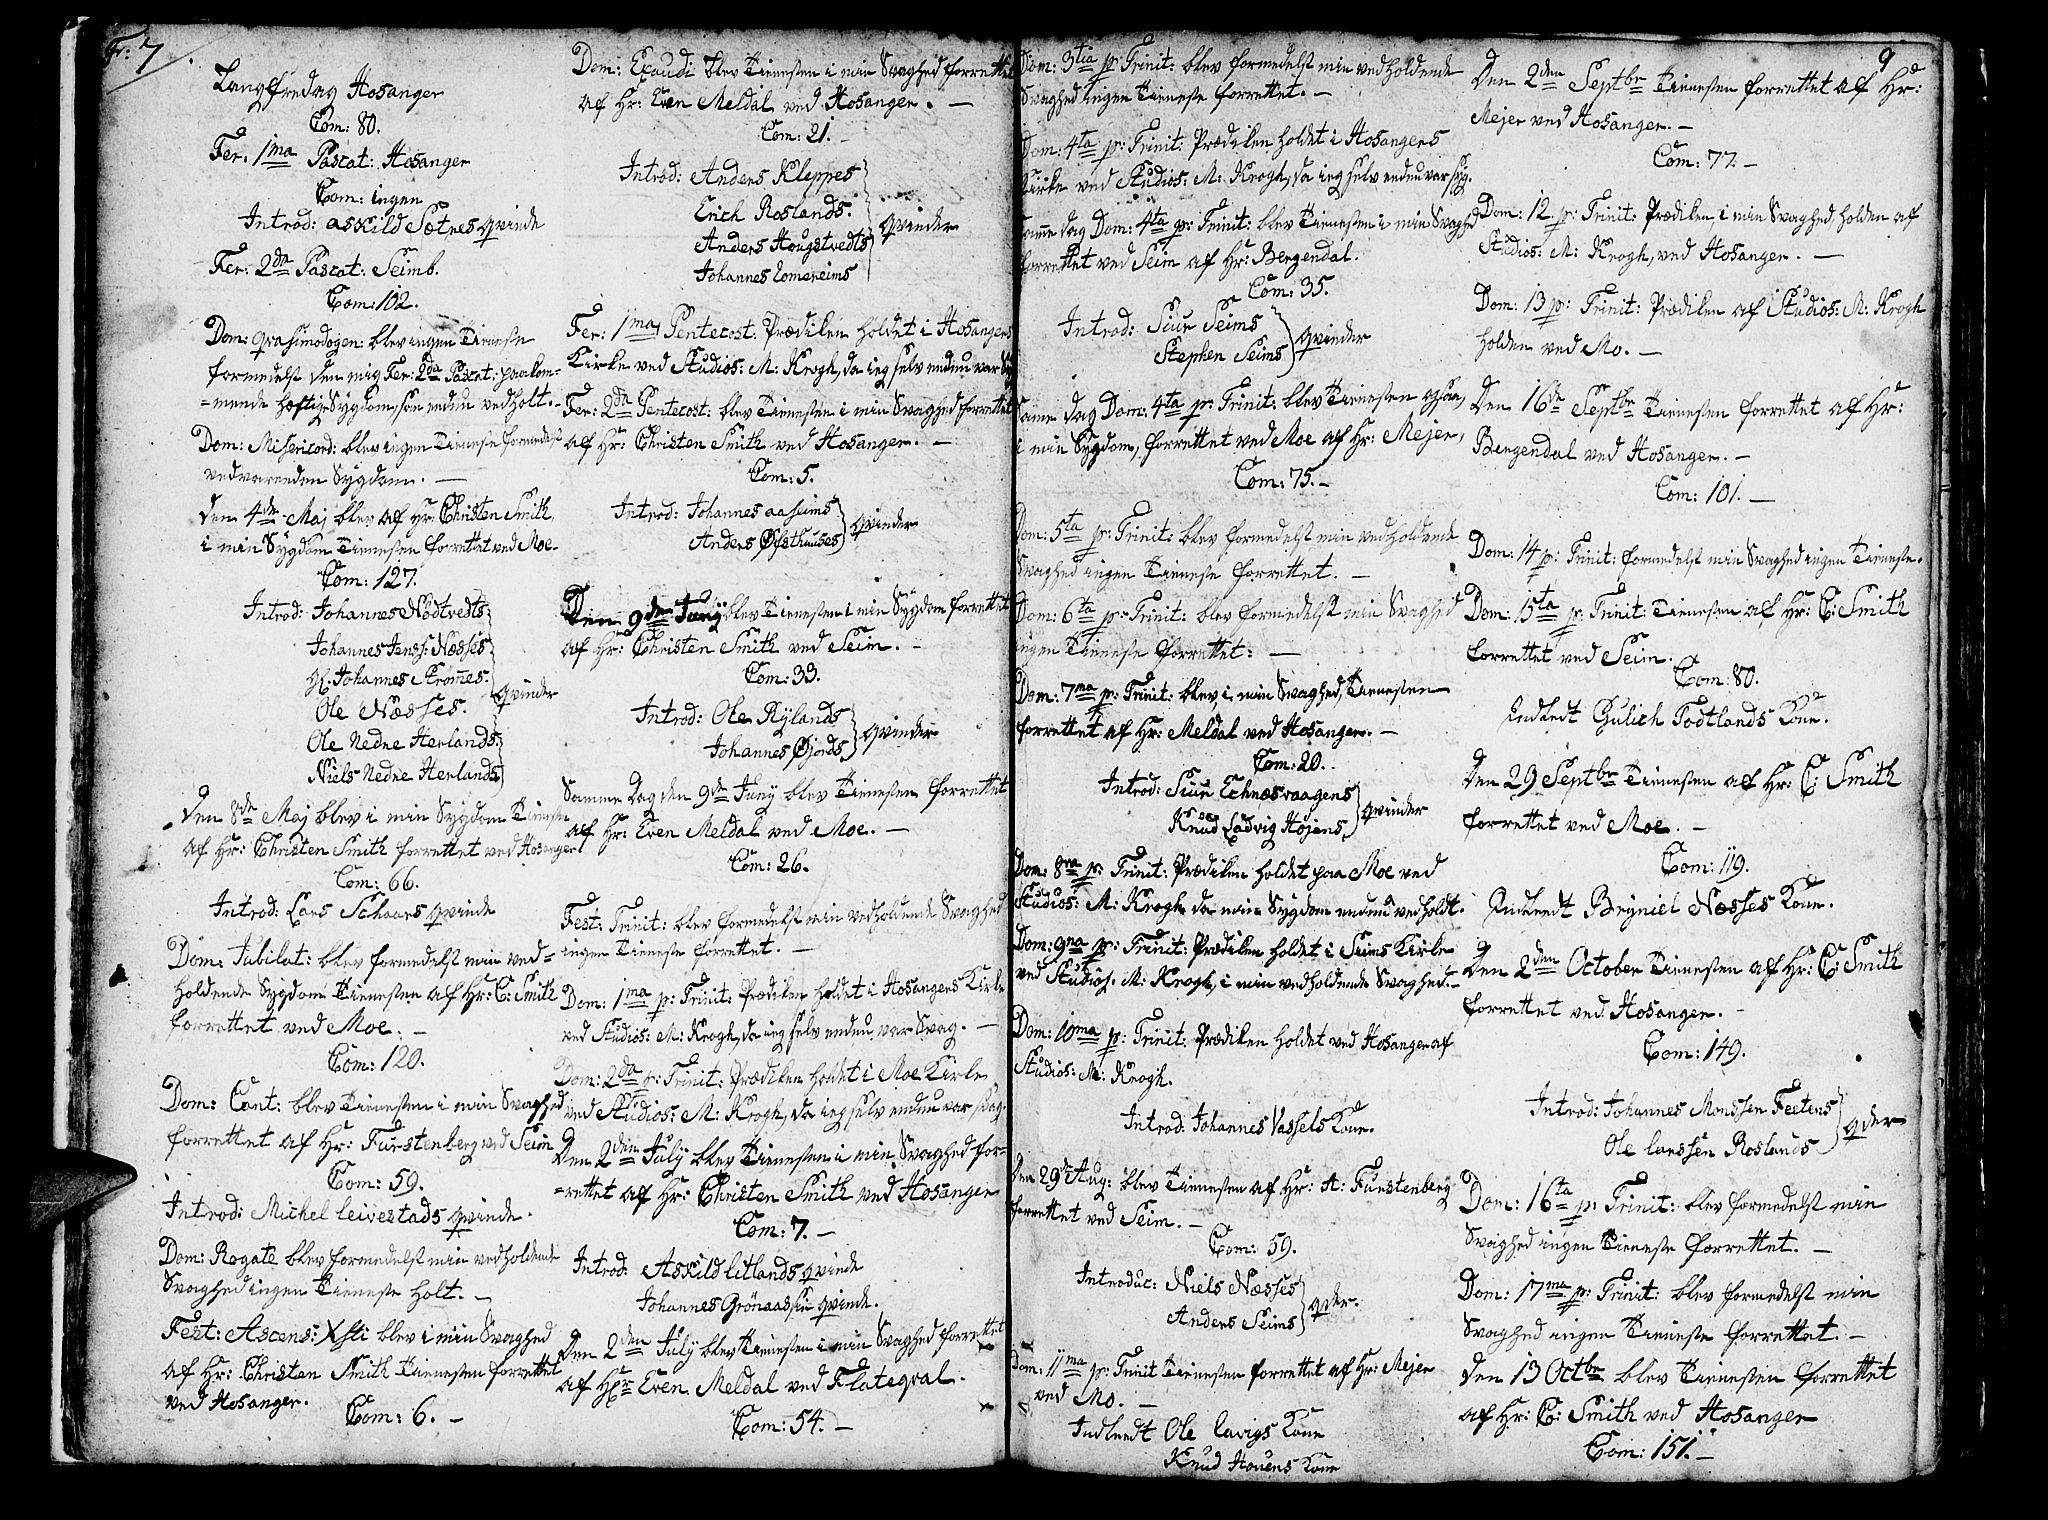 Fr: 7.
Langfredag Hosanger
Com: 80.
Fer: 1ma Pascat: Hosanger
Com: ingen
Introd: askild Sætnes qvinde
Fer: 2da Pascat: Seimb.
Com: 102.
Dom: qvasimodogen: blev ingen Tieneste
formedelst den mig Fer: 2da Pascat: paakom-
=mende hæftige Sygdom, som endnu vedholt.-
Dom: Misericord: blev ingen Tieneste formedelst
vedvarenden Sÿgdom. -
den 4de Maj blev af Hr: Christen Smith,
i min Sÿgdom Tienesten forrettet ved Moe.
Com: 127.
Introd: Johannes Nödtvedts
Johannes Jenss: Næsses
H. Johannes Stromes.
Ole Næsses.
qvinder
Ole Nedre Herlands
Niels Nedre Herlands
den 8de Maj blev i min Sÿgdom Tienesten
af Hr: Christen Smith forrettet ved Hosanger
Com: 66.
Introd: Lars Schaars qvinde
Dom: Jubilat: blev formedelst min ved=
holdende Sÿgdom Tienesten af Hr: C: Smith
forrettet ved Moe. -
Com: 120.
Dom: Cant: blev Tienesten i min Svaghed
forrettet af Hr: Fürstenberg ved Seim
Com: 59.
Introd: Michel Leivestads qvinde.
Dom: Rogate blev formedelst min vedholdende
Svaghed ingen Tieneste holt. -
Fest: Ascens: Xsti blev i min Svaghed
af Hr: Christen Smith Tienesten forrettet
ved Hosanger.
Com: 6. -
Dom: Exaudi blev Tienesten i min Svaghed forrettet
af Hr: Even Meldal ved Hosanger. -
Com: 21. -
Introd: Anders Kleppes
Erich Roslands.
Anders Hougstvedts
Johannes Eomereims
qvinder
Fer: 1ma Pentecost: Prædiken holdet i Hosangers
Kirke ved Studios: M: Krogh, da ieg selv endnu var Sÿg
Fer: 2da Pentecost: blev Tienesten i min Svaghed forrettet
af Hr: Christen Smith ved Hosanger. -
Com: 5.
Introd: Johannes aaseims
Anders Øfsthuuses
qvinder
Den 9de Junÿ blev Tienesten i min Sÿgdom forrettet
af Hr: Christen Smith ved Seim. -
Com: 33.
Introd: Ole Rÿlands
Johannes Øjords
qvinder
Samme Dag den 9de Junÿ blev Tienesten forrettet
af Hr: Even Meldal ved Moe. -
Com: 26.
Fest: Trinit: blev formedelst min vedholdende Svaghed
ingen Tieneste forrettet. -
Dom: 1ma p: Trinit: Prædiken holdet i Hosangers Kirke
ved Studios: M: Krogh, da ieg selv endnu var Svag. -
Dom: 2da p: Trinit: Prædiken holdet i Moe Kirke
ved Studios: M: Krogh, da ieg selv endnu var svag.
Den 2den Julÿ blev Tienesten i min Svaghed for-
=rettet af Hr: Christen Smith ved Hosanger
Com: 7. -
Introd: Askild Litlands qvinde
Johannes Grönaassin qvinde.
den 2den Julÿ blev Tienesten i min Svaghed forrettet
af Hr: Even Meldal ved Flateqval.
Com: 54. -
Dom: 3tia p: Trinit: blev formedelst min vedholdende
Svaghed ingen Tieneste forrettet. -
Dom: 4ta p: Trinit: Prædiken holdet i Hosangers
Kirke ved Studios: M: Krogh, da ieg selv endnu var sÿg.
Samme dag Dom: 4ta p: Trinit: blev Tienesten i min Svaghed
forrettet ved Seim af Hr: Bergendal.
Com: 35.
Introd: Siur Seims
Stephen Seims
qvinder
Samme dag Dom: 4ta p: Trinit: blev Tienesten ogsaa,
i min Sÿgdom, forrettet ved Moe af Hr: Mejer,
Com: 75. -
Dom: 5ta p: Trinit: blev formedelst min vedholdende
Svaghed ingen Tieneste forrettet. -
Dom: 6ta p: Trinit: blev formedelst min Svaghed
ingen Tieneste forrettet: -
Dom: 7ma p: Trinit: blev, i min Svaghed, Tienesten
forrettet af Hr: Meldal ved Hosanger. -
Com: 20.
Introd: Siur Echnæsvaagens
Knud Ladvig Højens
qvinder
Dom: 8va p: Trinit: Prædiken holdet paa Moe ved
Studios: M: Krogh da min Sÿgdom endnu vedholdt.
Dom: 9na p: Trinit: Prædiken holdet i Seims Kirke
ved Studios. M: Krogh, i min vedholdende Svaghed. -
Dom: 10ma p: Trinit: Prædiken holdet ved Hosanger af
Studios: M: Krogh.
Introd: Johannes Vassels Kone.
Den 29de Aug: blev Tienesten af Hr: A: Fürstenberg
forrettet ved Seim. -
Com: 59.
Introduc: Niels Næsses
Anders Seims
qder.
Dom: 11ma p: Trinit Tienesten forrettet af Hr: Mejer
ved Mo. -
Indleedt Ole Lavigs Kone
Knud Houens Kone
9
Den 2den Septbr Tienesten forrettet af Hr:
Mejer ved Hosanger. -
Com: 77. -
Dom: 12 p: Trinit: Prædiken i min Svaghed holden af
Studios: M: Krogh, ved Hosanger. -
Dom: 13 p: Trinit: Prædiken af Studios: M: Krogh
holden ved Mo. -
Den 16de Septbr Tienesten forrettet af Hr:
Bergendal ved Hosanger. -
Com: 101. -
Dom: 14 p: Trinit: formedelst min Svaghed ingen Tieneste.
Dom: 15ta p: Trinit: Tienesten af Hr: C: Smith
forrettet ved Seim.
Com: 80.
Indledt Gulich Todtlands Kone.
Den 29 Septbr Tienesten af Hr: C: Smith
forrettet ved Moe. -
Com: 119.
Indleedt Brÿniel Næsses Kone.
Den 2den October Tienesten af Hr: C: Smith
forrettet ved Hosanger. -
Com: 149.
Introd: Johannes Monssen Festens
Ole Larssen Roslands
qder
Dom: 16ta p: Trinit: blev formedelst min
Svaghed ingen Tieneste forrettet. -
Dom: 17ma p: Trinit: blev formedelst min
Svaghed ingen Tieneste forrettet. -
den 13 Octbr blev Tienesten forrettet
af Hr: C: Smith ved Hosanger
Com: 151. -